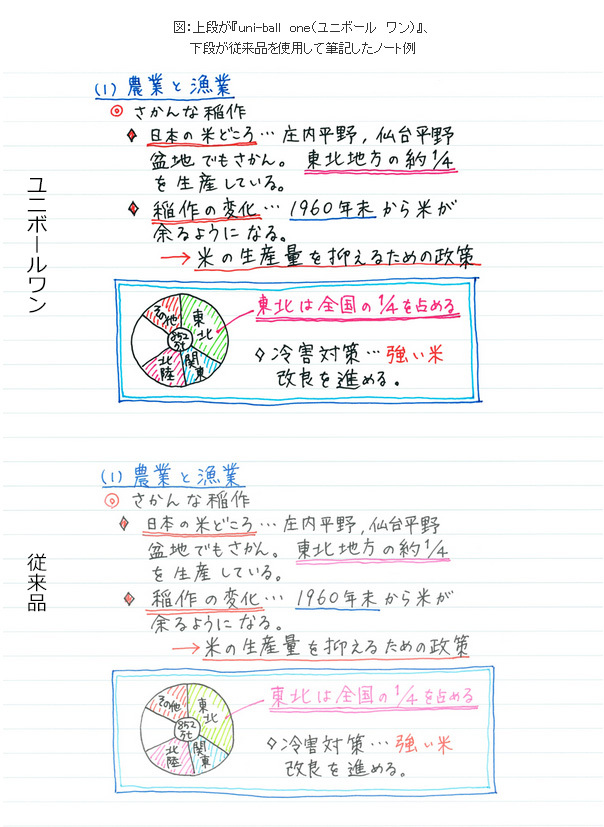 図：上段が『uni-ball one（ユニボール ワン）』、
下段が従来品を使用して筆記したノート例
ユニボールワン
(1) 農業と漁業
◎ さかんな稲作
◆ 日本の米どころ… 庄内平野, 仙台平野
盆地でもさかん。 東北地方の約1/4
を生産している。
◆ 稲作の変化… 1960年末から米が
余るようになる。
→ 米の生産量を抑えるための政策
その他
東北
852
万t
北陸
関東
東北は全国の1/4を占める
◇冷害対策…強い米
改良を進める。
従来品
(1) 農業と漁業
◎ さかんな稲作
◆ 日本の米どころ… 庄内平野, 仙台平野
盆地でもさかん。 東北地方の約1/4
を生産している。
◆ 稲作の変化… 1960年末から米が
余るようになる。
→ 米の生産量を抑えるための政策
その他
東北
852
万t
北陸
関東
東北は全国の1/4を占める
◇冷害対策…強い米
改良を進める。